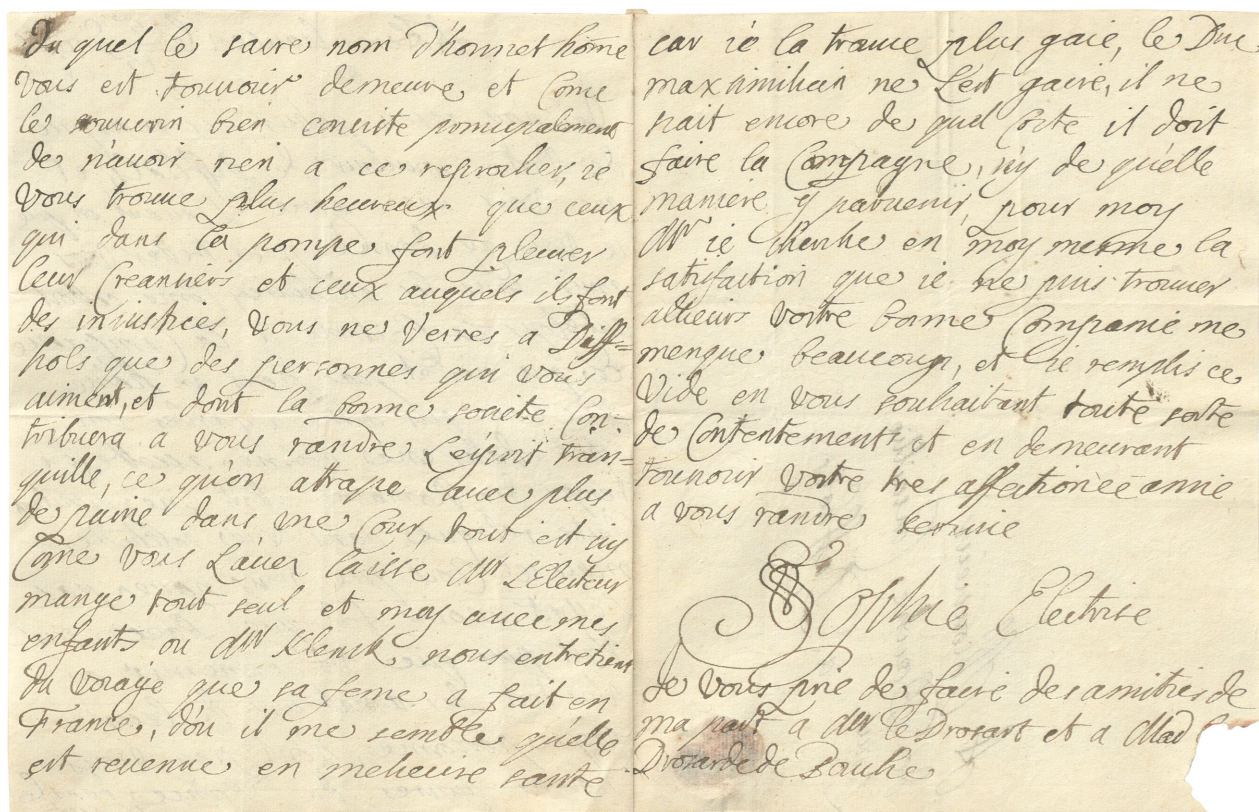 du quel le saive nom d'honnet home
vous est touvoir demeure et Come
le souverin bien consiste principalement
de n'avoir rien a ce reprocher, ie
vous trouve plus heureux que ceux
qui dans la pompe font pleurer
leur Creanciers et ceux auquels ils font
des injustices, vous ne verres a Diff=
hols que des personnes qui vous
aiment, et dont la bonne societe Con-
tribuera a vous randre L'esprit tran=
quille, ce qu'on atrape avec plus
de paine dans une Cour, tout est icy
Come vous L'avez laisse Mr L'Electeur
mange tout seul et moy avec mes
enfants ou Mr Klenck nous entretient
du voiage que sa feme a fait en
France, d'ou il me semble qu'elle
est revenue en melieure sante
car ie la trouve plus gaie, le Duc
maximilien ne L'est gaire, il ne
sait encore de quel Coste il doit
faire la Compagne, n'y de quelle
maniere y parvenir, pour moy
Mr ie cherche en moy mesme la
satisfaction que ie ne puis trouver
allieurs vostre bonne Compagnie me
menque beaucoup, et ie remplis ce
vide en vous souhaitant toute sorte
de Contentements et en demeurant
touvoir vostre tres affectionèe amie
a vous randre servise
Sophie Electrise
Je vous prie de faire des amities de
ma part a Mr le Drosart et a Mad
Drosarde de Bauhe